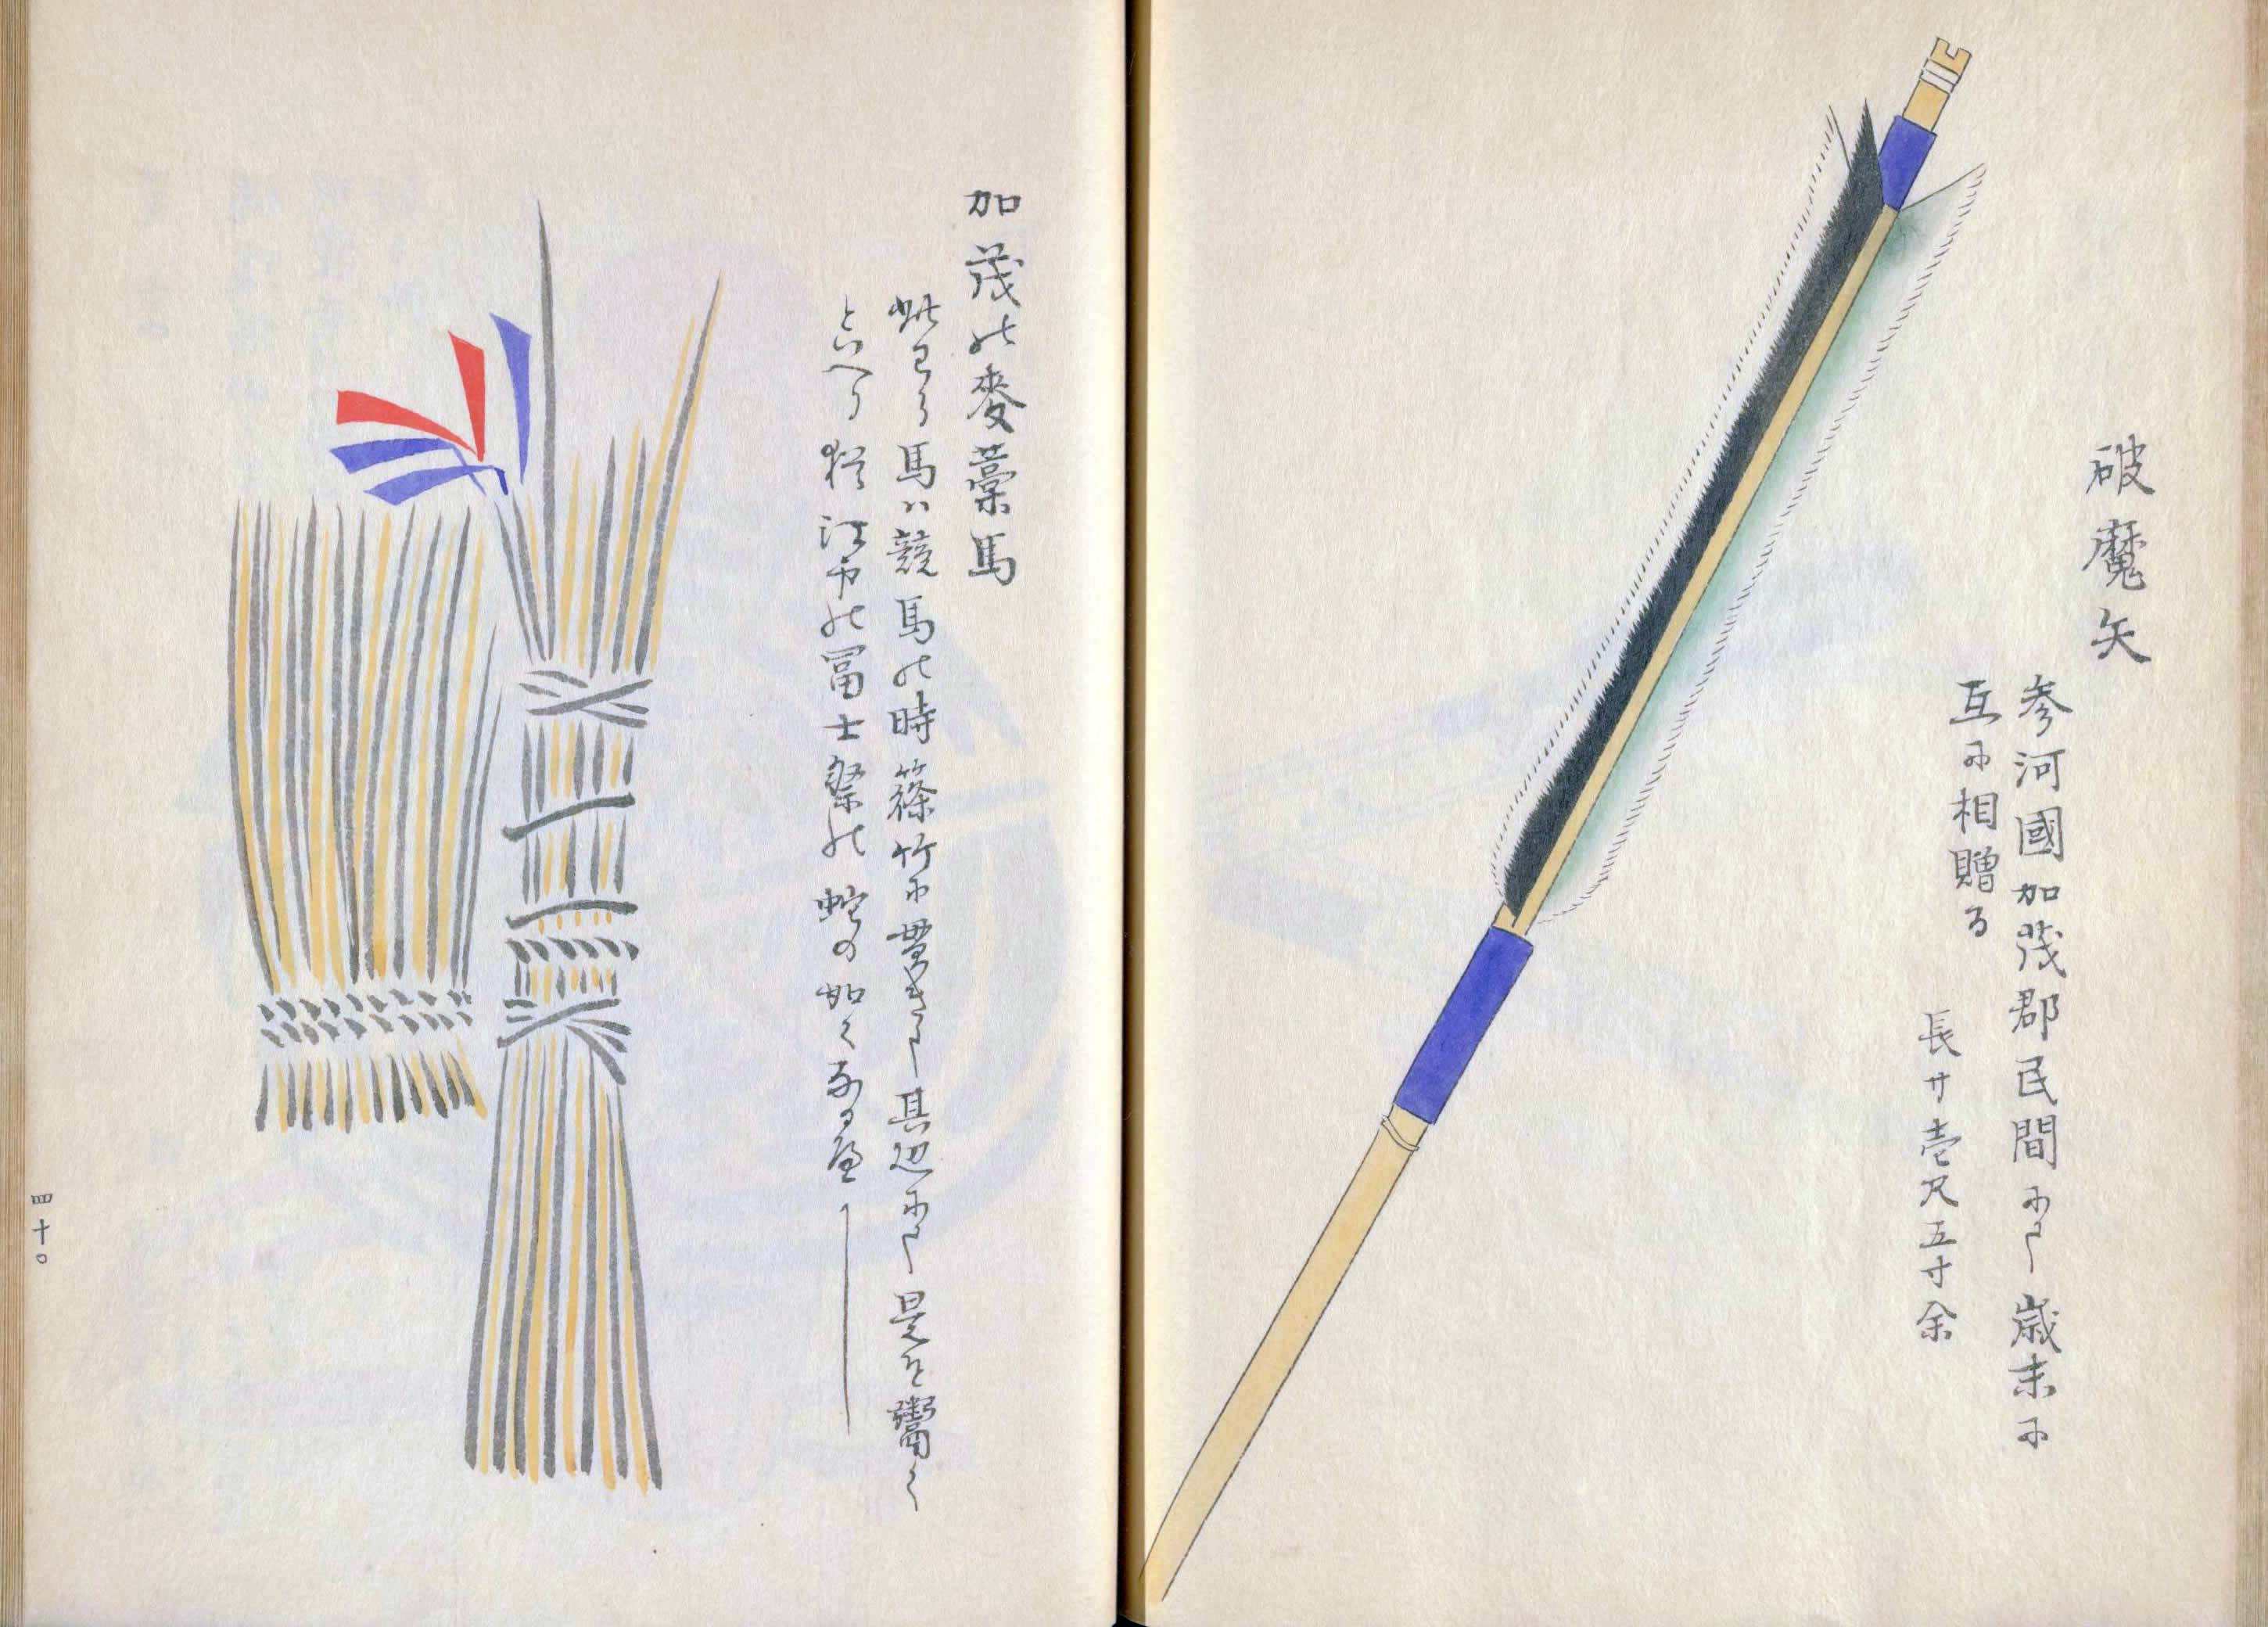 破魔矢
参河國加茂郡民間にて歳末に
互に相贈る
長サ壱尺五寸余
加茂の麥藁馬
此わら馬ハ競馬の時篠竹に貫きて其辺にて是を鬻く
といへり 猶江戸の冨士祭の蛇の如くなる歟
四十〇